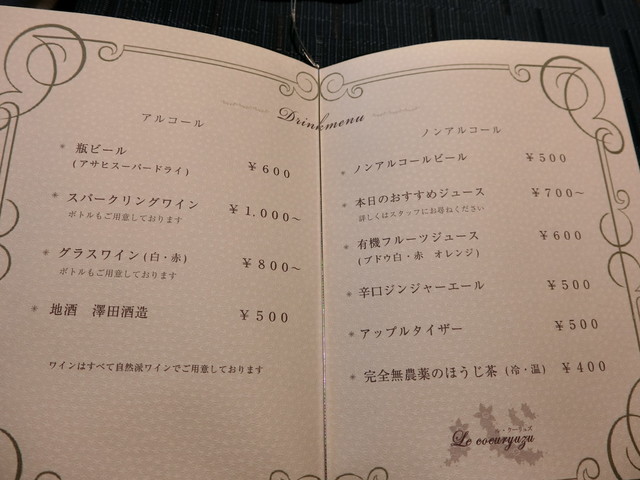 Drinkmenu
アルコール
* 瓶ビール
(アサヒスーパードライ) ¥600
* スパークリングワイン ¥1,000~
ボトルもご用意しております
* グラスワイン(白・赤) ¥800~
ボトルもご用意しております
* 地酒 澤田酒造 ¥500
ワインはすべて自然派ワインでご用意しております
ノンアルコール
* ノンアルコールビール ¥500
* 本日のおすすめジュース ¥700~
詳しくはスタッフにお尋ねください
* 有機フルーツジュース ¥600
(ブドウ白・赤 オレンジ)
* 辛口ジンジャーエール ¥500
* アップルタイザー ¥500
* 完全無農薬のほうじ茶(冷・温) ¥400
Le coeuryuzu